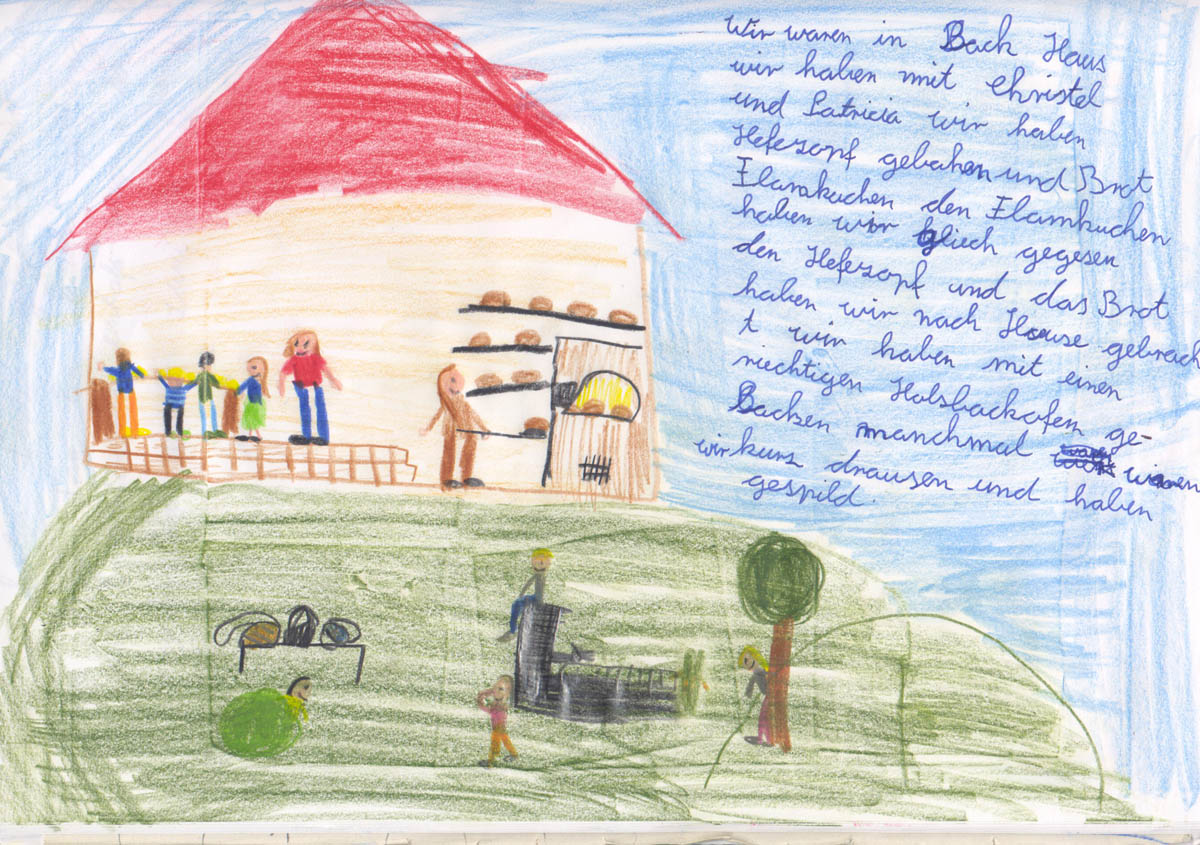 Wir waren in Back Haus
wir haben mit Christel
und Patricia wir haben
Hefezopf gebaken und Brot
Flamkuchen den Flamkuchen
haben wir gliech gegesen
den Hefezopf und das Brot
haben wir nach Hause gebrach
t wir haben mit einen
riechtigen Holsbackofen ge-
Backen manchmal waren
wir kurz drausen und haben
gespild.